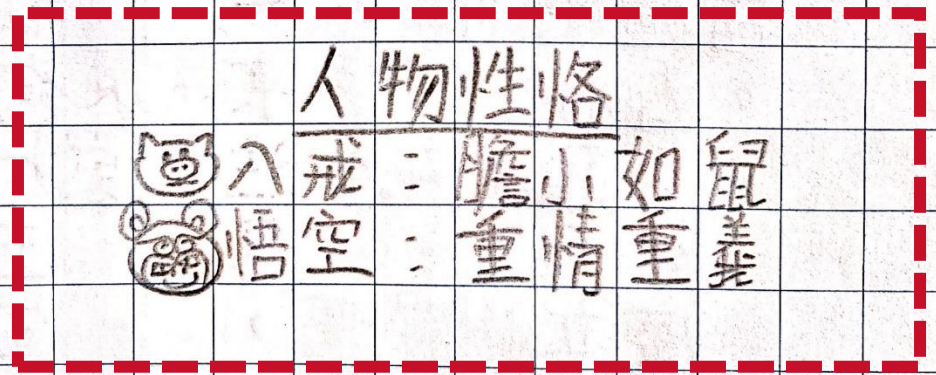 人物性恪
八戒：膽小如鼠
悟空：重情重義